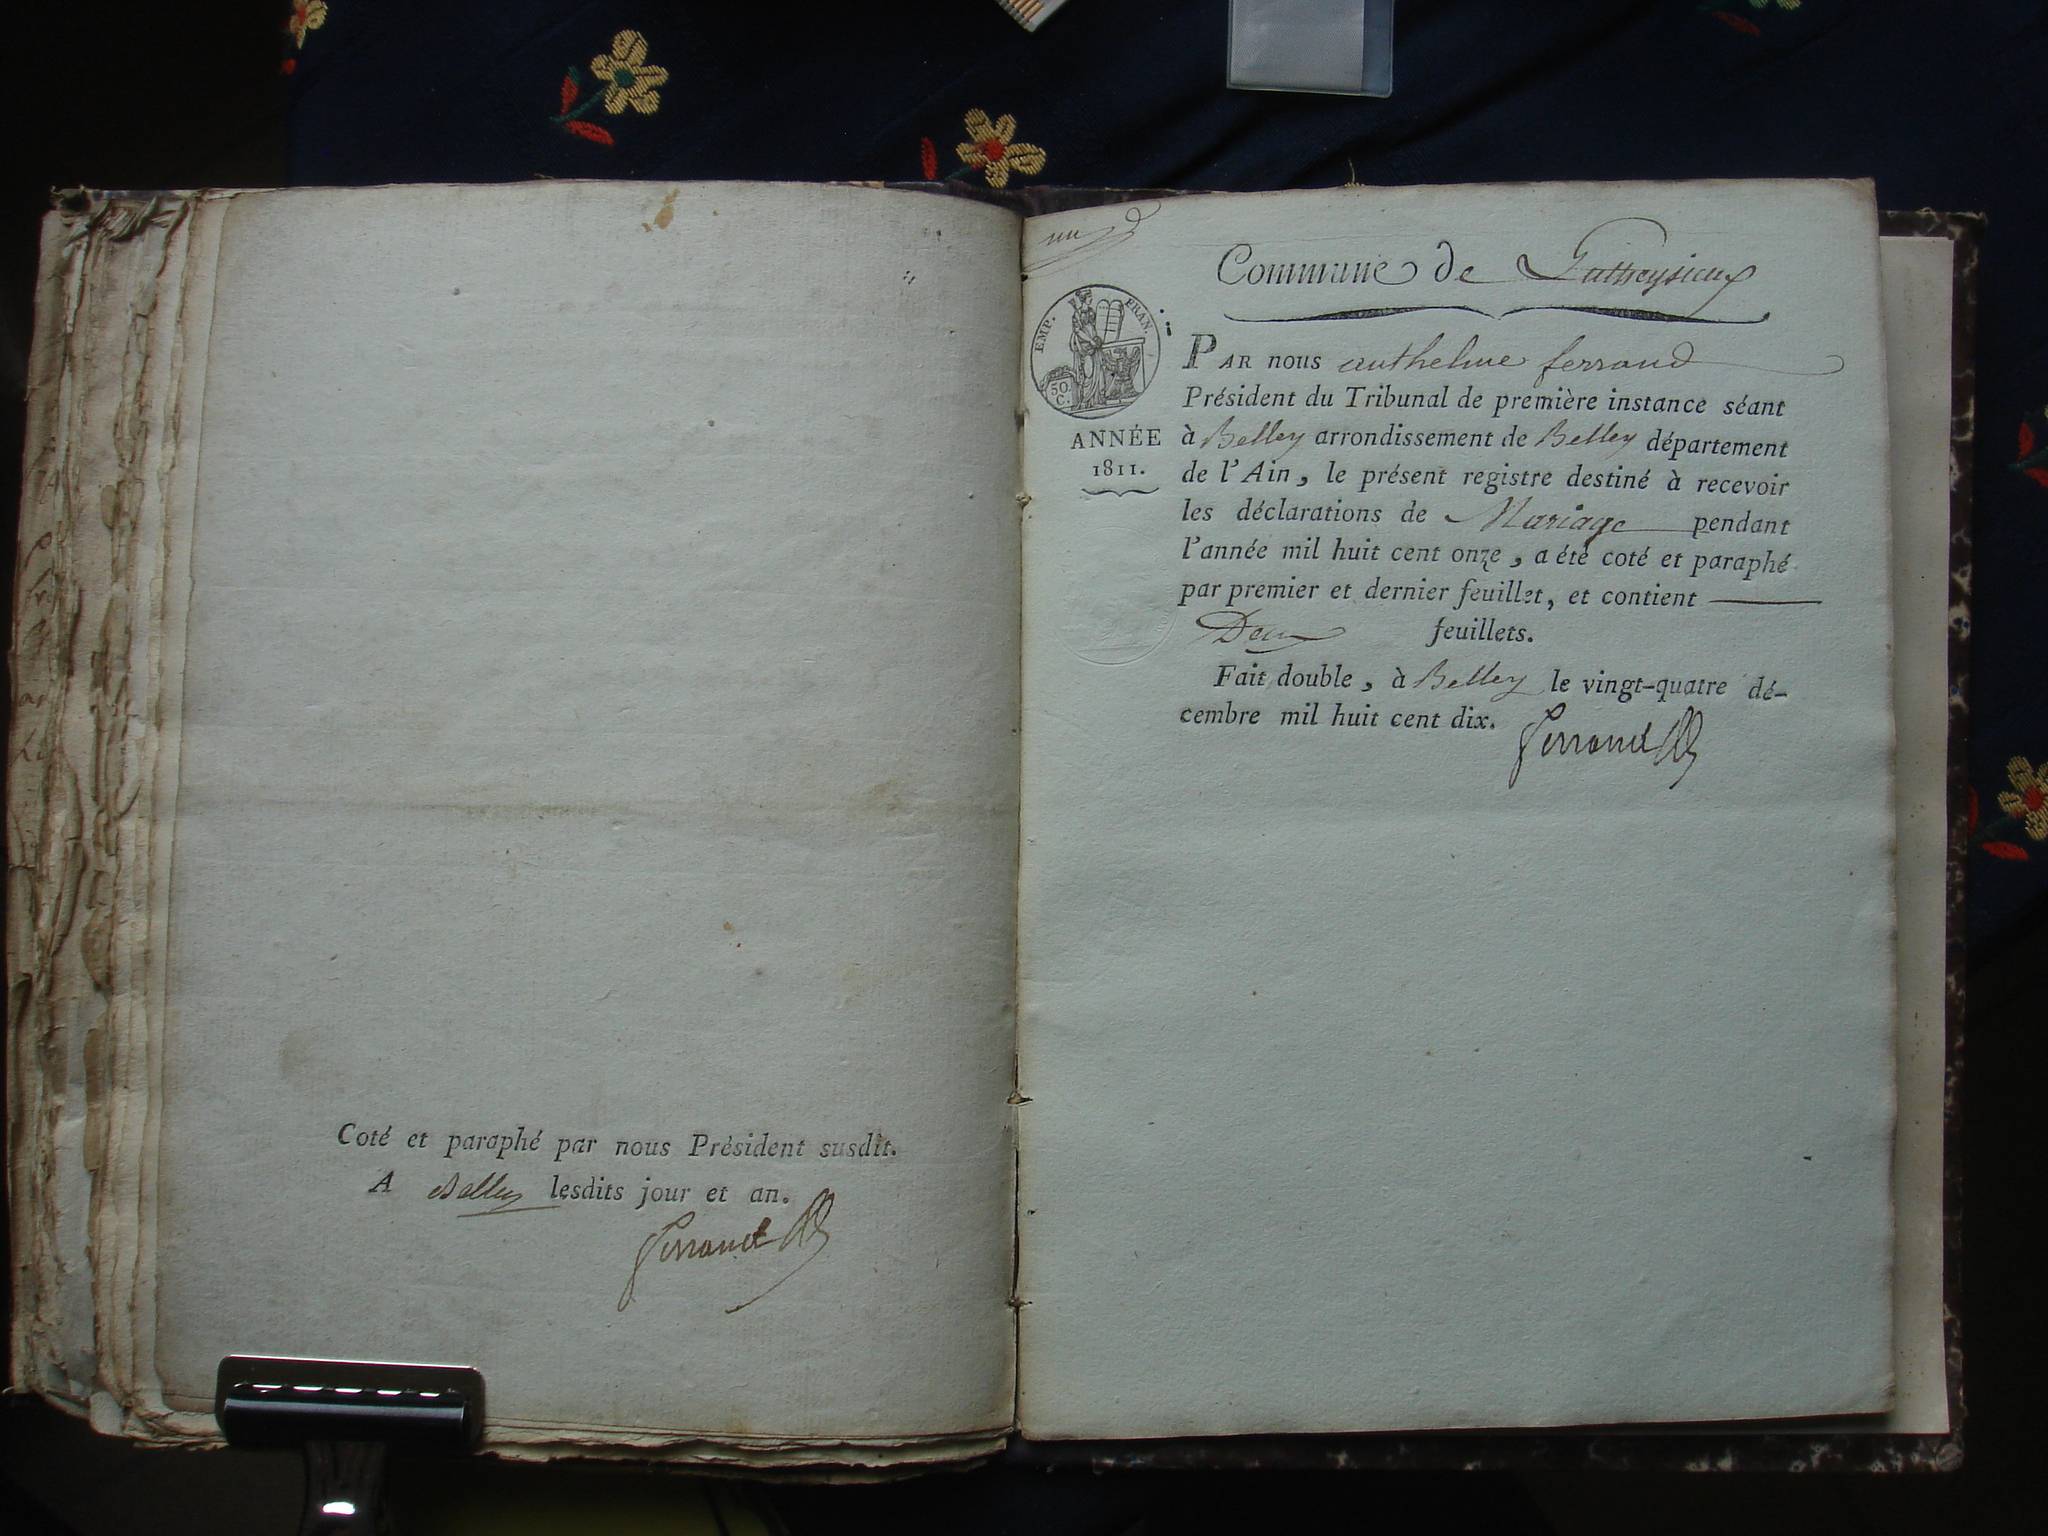 Coté et paraphé par nous Président susdit.
A Belley lesdits jour et an.
Ferrand
un
Commune de
EMP. FRAN.
50 C.
ANNÉE
1811.
PAR nous anthelme ferrand
Président du Tribunal de première instance séant
à Belley arrondissement de Belley département
de l'Ain, le présent registre destiné à recevoir
les déclarations de Mariage pendant
l'année mil huit cent onze, a été coté et paraphé
par premier et dernier feuillet, et contient
Deux feuillets.
Fait double, à Belley le vingt-quatre dé-
cembre mil huit cent dix.
Ferrand